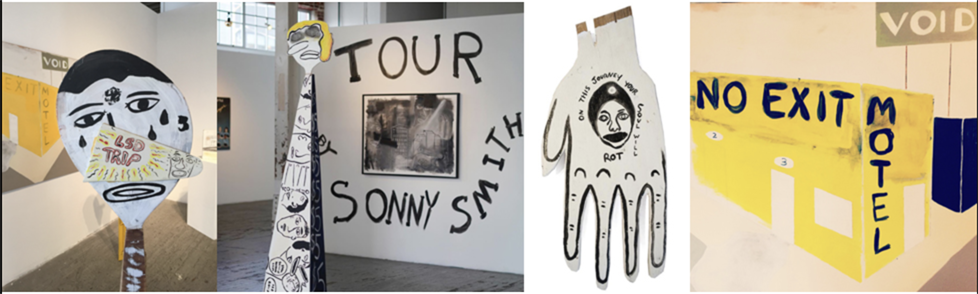 VOID
EXIT
MOTEL
LSD
TRIP
TOUR
SONNY SMITH
ON THIS JOURNEY YOUR
ROT
VOID
NO EXIT
MOTEL
2
3